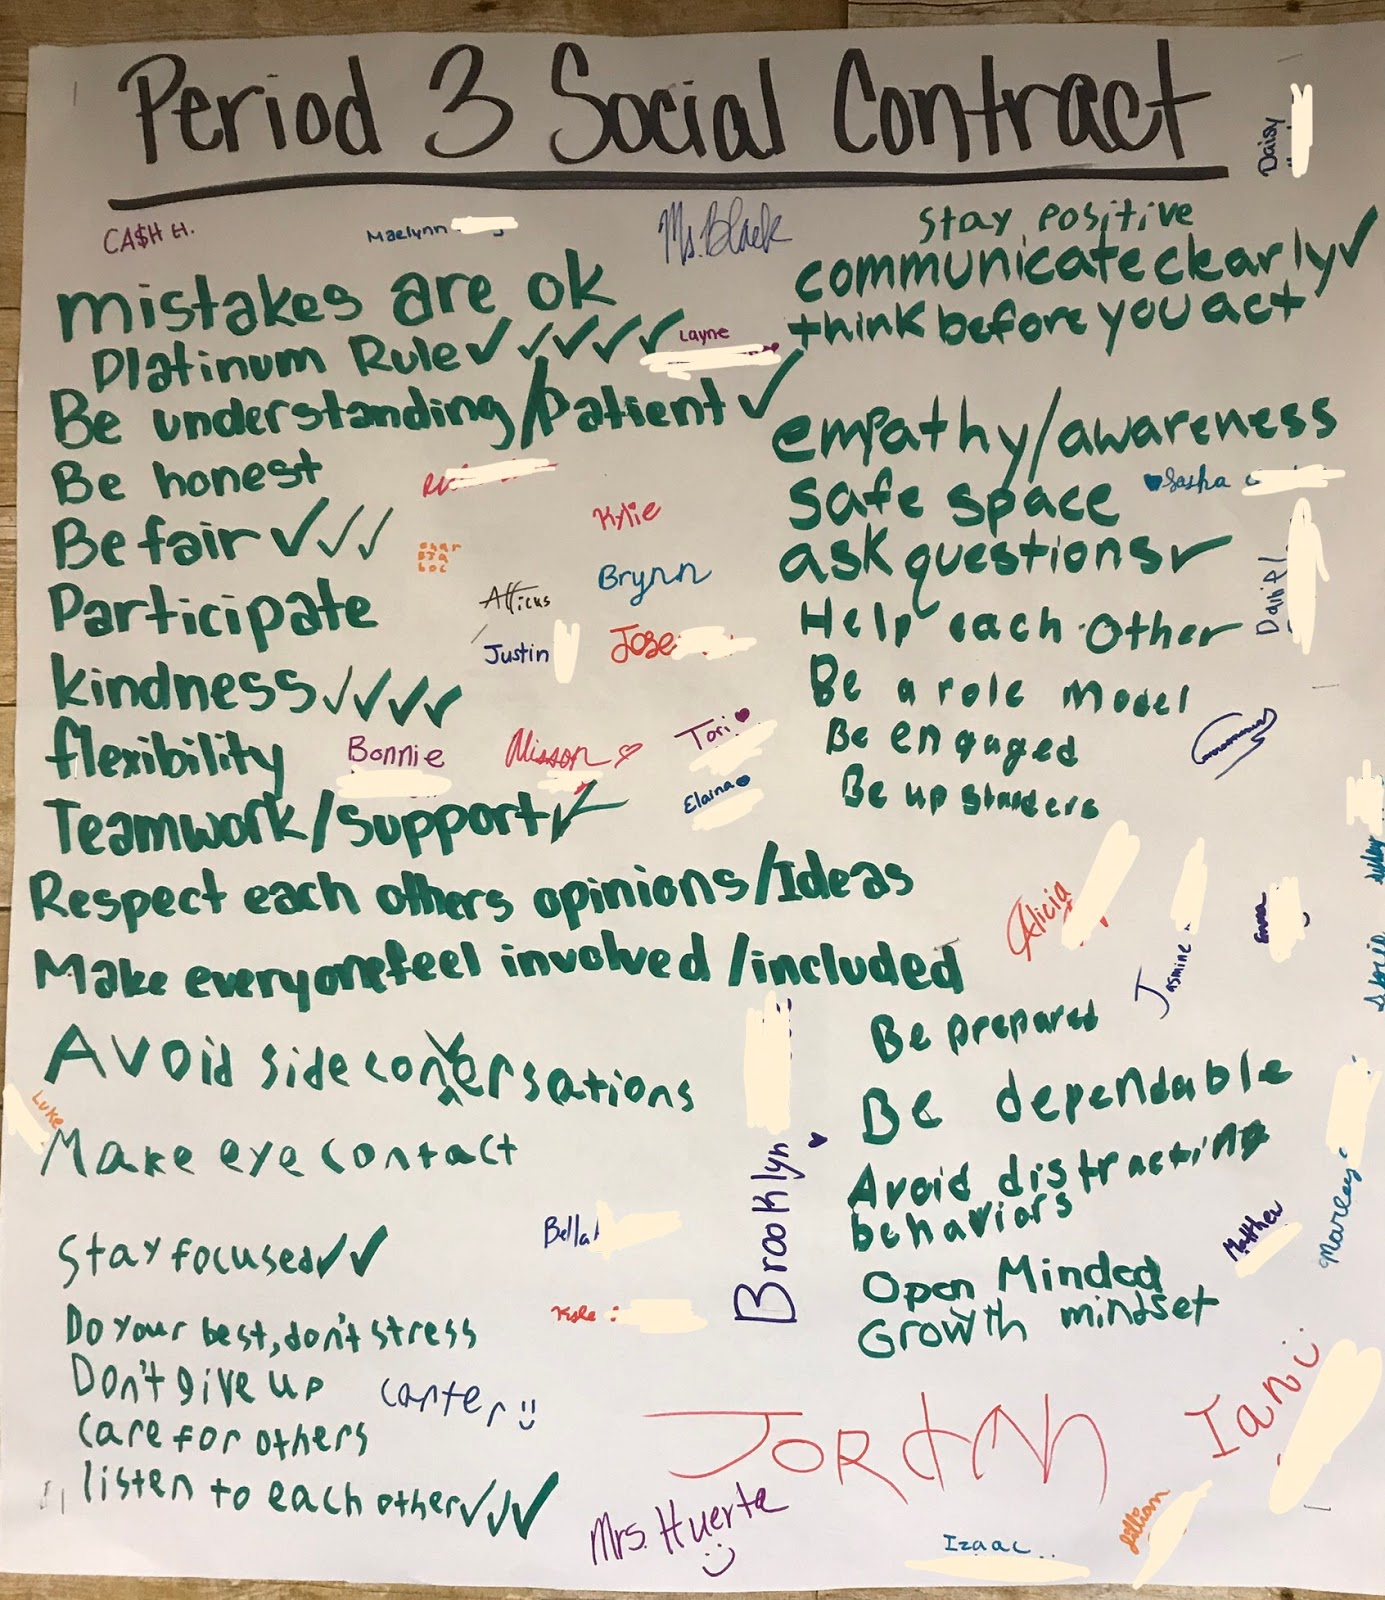 Period 3 Social Contract
Daisy
CA$H H.
Maelynn
Ms. Black
Stay Positive
communicate clearly✓
think before you act
mistakes are ok
Platinum Rule✓✓✓✓✓
Layne
Be understanding/patient✓
Be honest
Be fair✓✓✓
Participate
kindness✓✓✓✓
flexibility
Teamwork/support✓
Respect each others opinions/Ideas
Make everyone feel involved/included
empathy/awareness
safe space
Sasha
ask questions✓
Help each other
Be a role model
Be engaged
Be upstanders
Kylie
Brynn
Atticus
Justin
Jose
Daniel
Bonnie
Alisson
Tori
Elaina
Alicia
Jasmine
Emma
Avoid side conversations
Luke
Make eye contact
Stay focused✓✓
Do your best, don't stress
Don't give up
care for others
listen to each other✓✓✓
Bella
Brooklyn
Carter
Be prepared
Be dependable
Avoid distracting
behaviors
Open Minded
Growth mindset
Matthew
Marley
Jordan
Ian
Mrs. Huerta
Izaac
Jillian